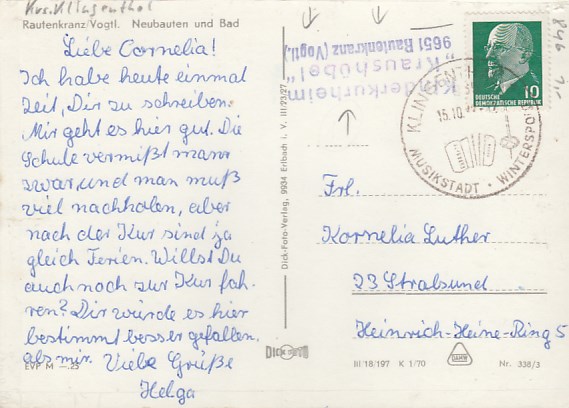 Krs. Klingenthal
Rautenkranz/Vogtl. Neubauten und Bad
Liebe Cornelia!
Ich habe heute einmal
Zeit, Dir zu schreiben.
Mir geht es hier gut. Die
Schule vermißt mann
zwar, und man muß
viel nachholen, aber
nach der Kur sind ja
gleich Ferien. Willst Du
auch noch zur Kur fah-
ren? Dir würde es hier
bestimmt besser gefallen,
als mir. Viele Grüße
Helga
EVP M —.25
Dick-Foto-Verlag, 9934 Erlbach i. V. III/23/27
DICK
Kinderkurheim
„Kraushübel“
9651 Rautenkranz (Vogtl.)
DEUTSCHE
DEMOKRATISCHE REPUBLIK
10
KLINGENTHAL
15.10
MUSIKSTADT · WINTERSPO
1846
Frl.
Kornelia Luther
23 Stralsund
Heinrich-Heine-Ring 5
III 18/197 K 1/70
Nr. 338/3